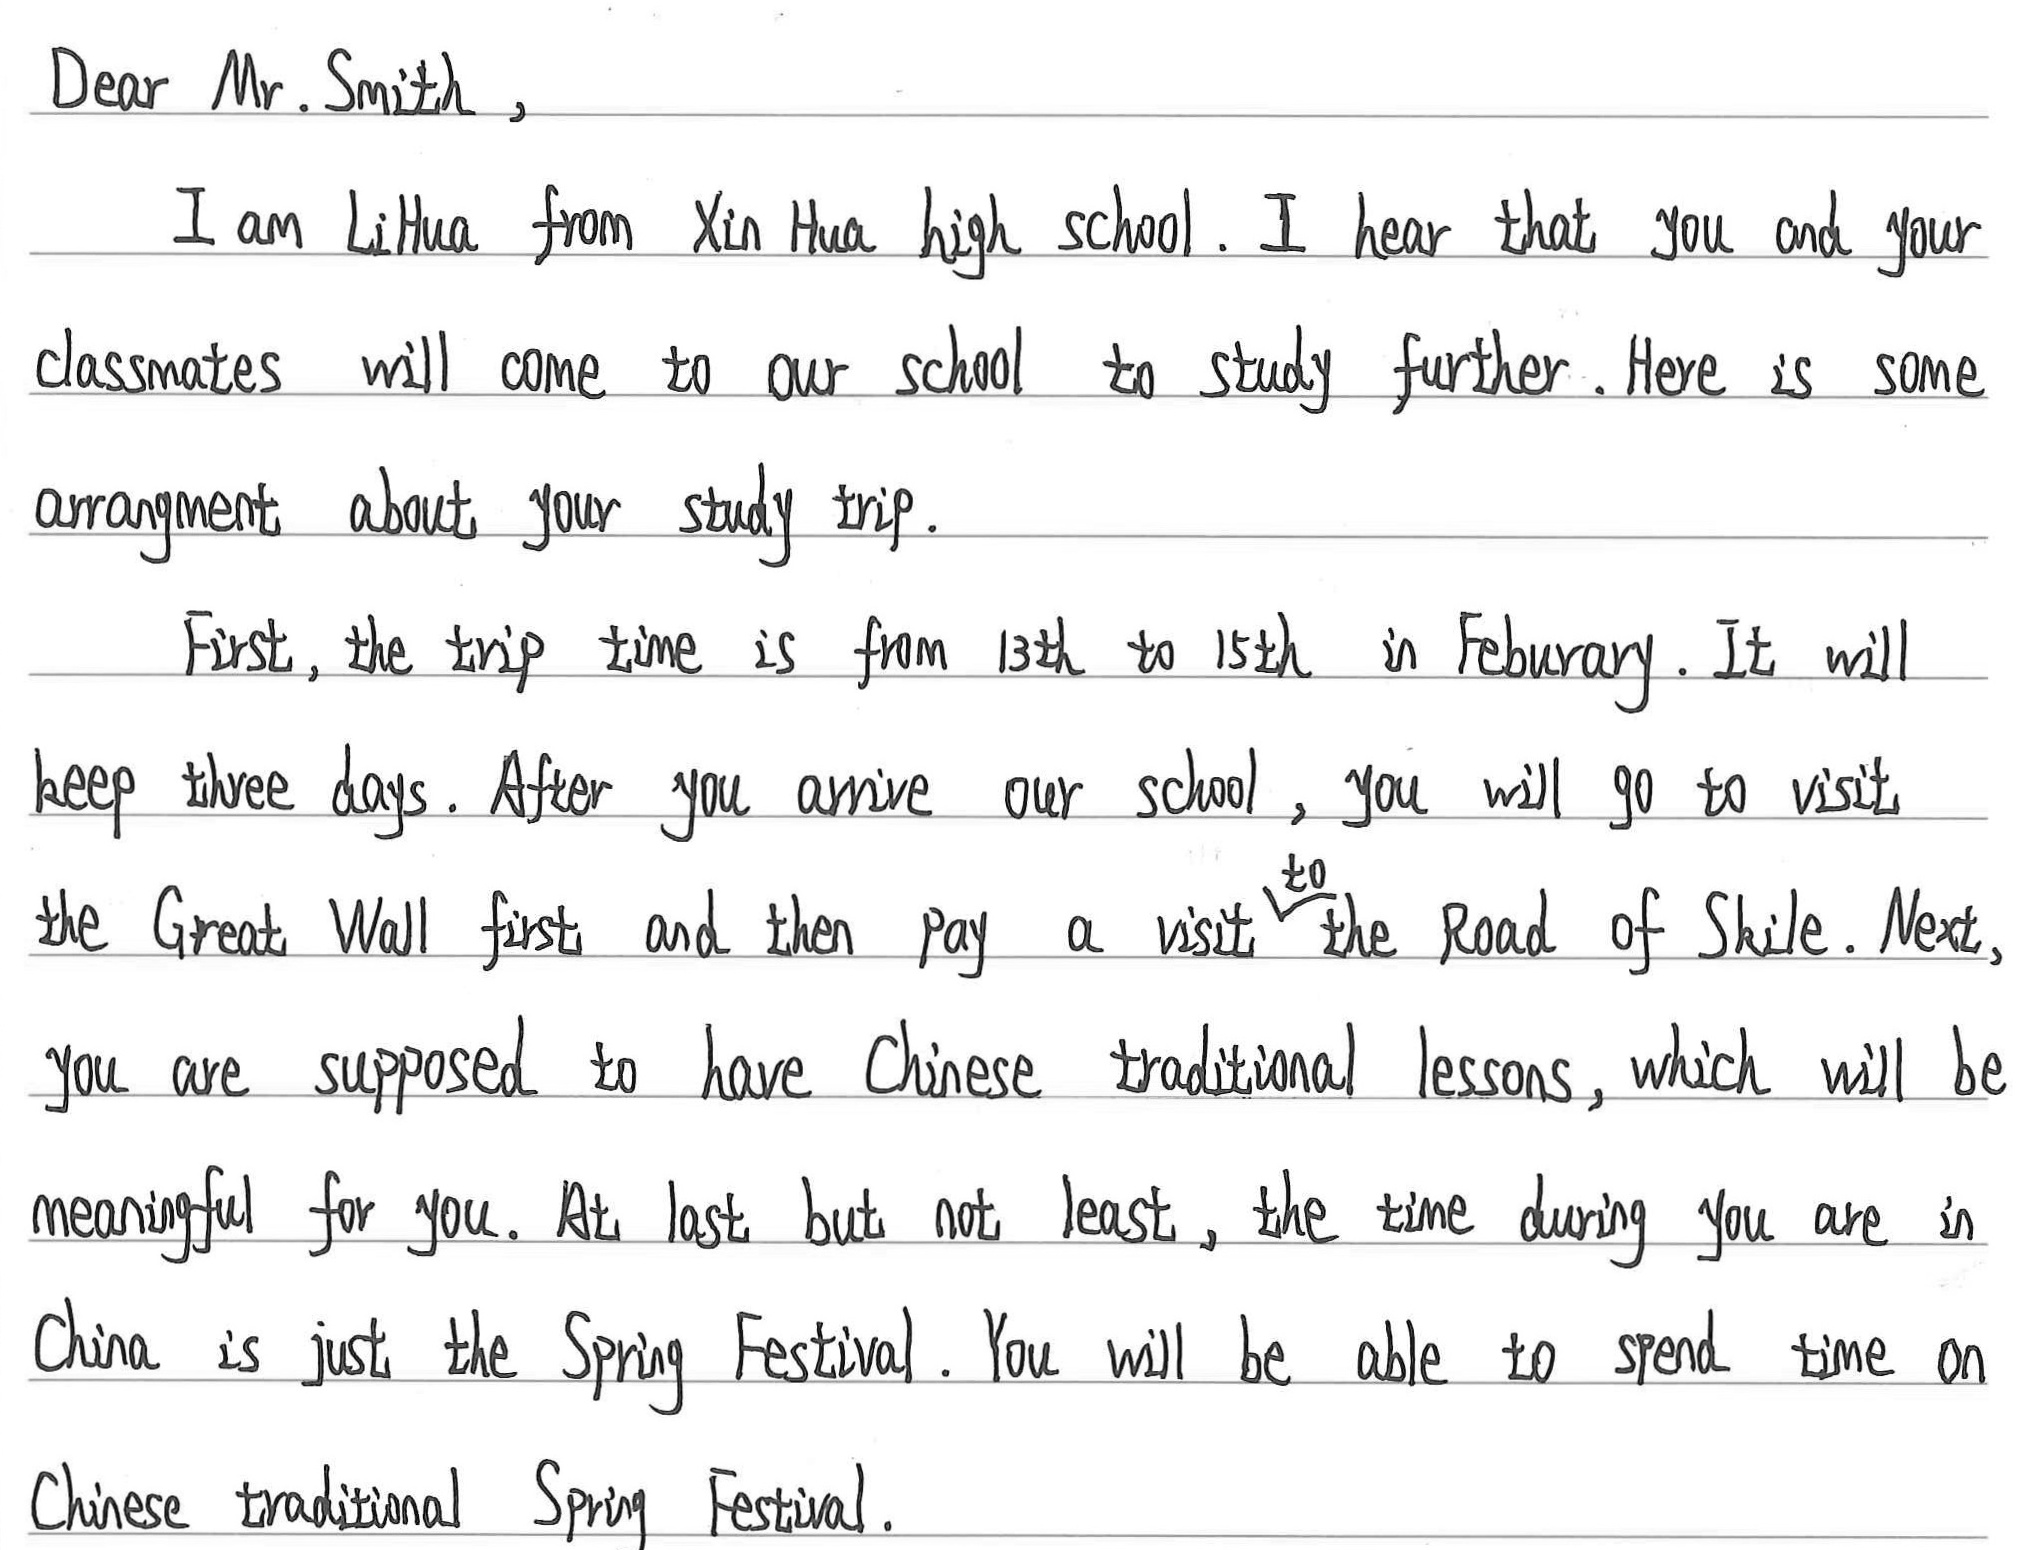 Dear Mr. Smith,
I am LiHua from Xin Hua high school. I hear that you and your
classmates will come to our school to study further. Here is some
arrangment about your study trip.
First, the trip time is from 13th to 15th in Feburary. It will
keep three days. After you arrive our school, you will go to visit
the Great Wall first and then pay a visit to the Road of Skile. Next,
you are supposed to have Chinese traditional lessons, which will be
meaningful for you. At last but not least, the time during you are in
China is just the Spring Festival. You will be able to spend time on
Chinese traditional Spring Festival.